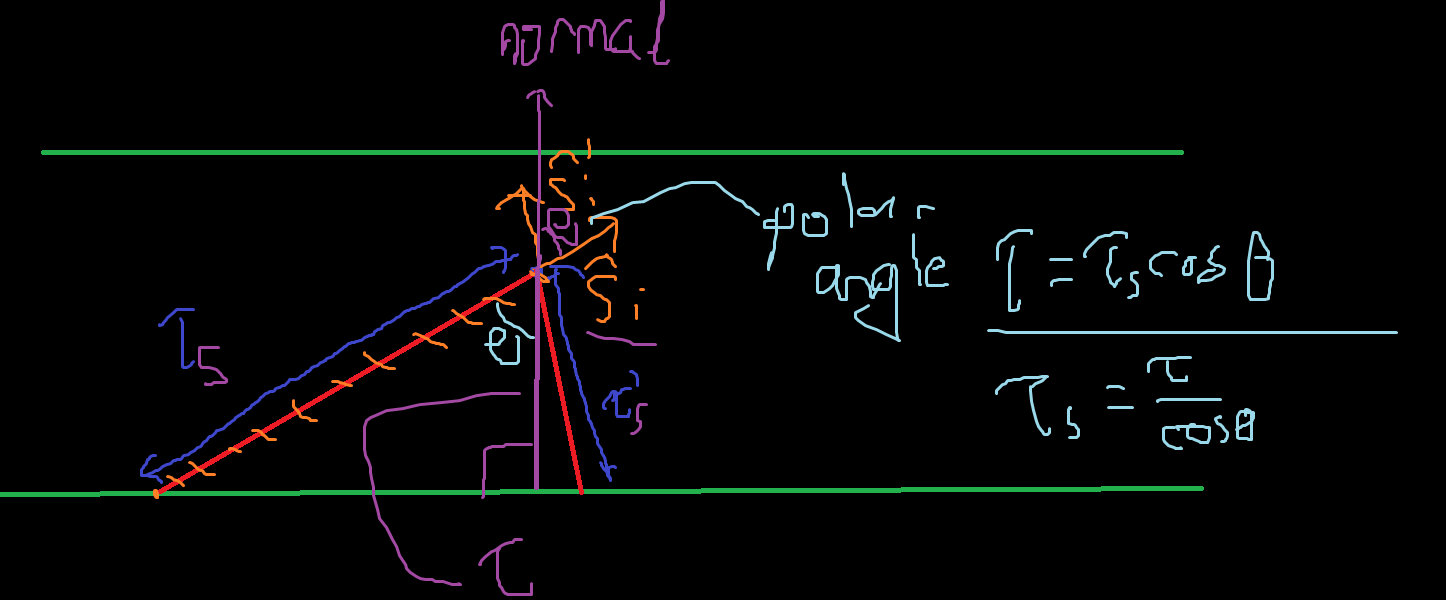 normal
polar
angle
τ = τₛ cos θ
τₛ = τ / cosθ
τₛ
θ
θ
τₛ
τ